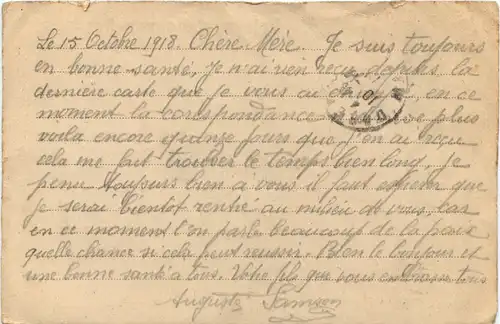 Le 15 Octobre 1918. Chère Mère. Je suis toujours
en bonne santé, je n'ai rien reçu depuis la
dernière carte que je vous ai en ce
moment la correspondance plus
voila encore quinze jours que j'en ai reçu
cela me fait trouver le temps bien long, je
pense toujours bien a vous il faut espérer que
je serai bientot rentré au milieu de vous, car
en ce moment l'on parle beaucoup de la paix
quelle chance si cela peut reussir. Bien le bonjour et
une bonne santé a tous. Votre fils que vous embrasse tous
Auguste Samson